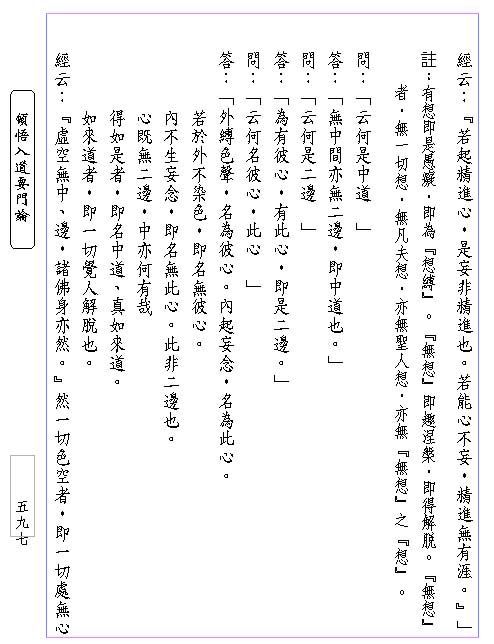 經云：『若起精進心，是妄非精進也。若能心不妄，精進無有涯。』」
註：有想即是愚癡，即為『想縛』。『無想』即趣涅槃，即得解脫。『無想』
者，無一切想，無凡夫想，亦無聖人想，亦無『無想』之『想』。
問：「云何是中道」
答：「無中間亦無二邊，即中道也。」
問：「云何是二邊」
答：「為有彼心，有此心，即是二邊。」
問：「云何名彼心，此心」
答：「外縛色聲，名為彼心。內起妄念，名為此心。
若於外不染色，即名無彼心。
內不生妄念，即名無此心。此非二邊也。
心既無二邊，中亦何有哉
得如是者，即名中道、真如來道。
如來道者，即一切覺人解脫也。
經云：『虛空無中、邊，諸佛身亦然。』然一切色空者，即一切處無心
頓悟入道要門論
五九七